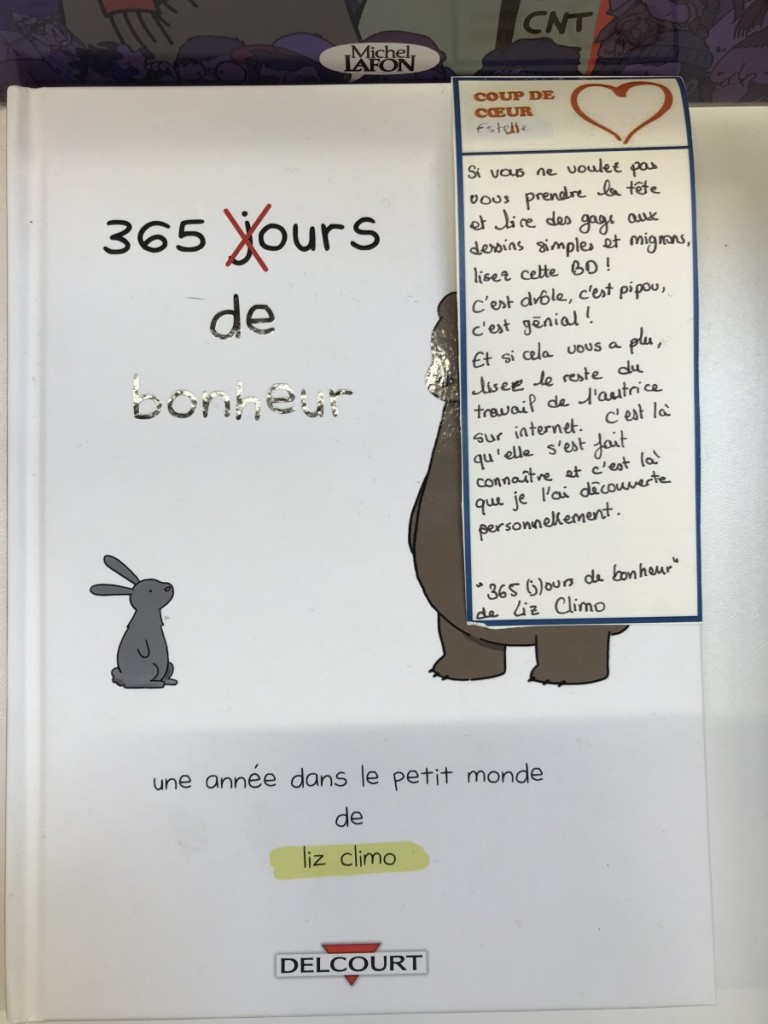 CNT
Michel
LAFON
365 jours
de
bonheur
une année dans le petit monde
de
liz climo
DELCOURT
COUP DE
CŒUR
Estelle
Si vous ne voulez pas
vous prendre la tête
et lire des gags aux
dessins simples et mignons,
lisez cette BD !
C'est drôle, c'est pipou,
c'est génial !
Et si cela vous a plu,
lisez le reste du
travail de l'autrice
sur internet. C'est là
qu'elle s'est fait
connaître et c'est là
que je l'ai découverte
personnellement.
"365 (j)ours de bonheur"
de Liz Climo